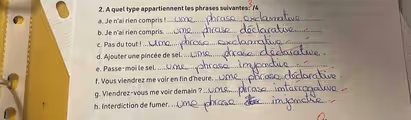 2. A quel type appartiennent les phrases suivantes: /4
a. Je n'ai rien compris ! une phrase exclamative
b. Je n'ai rien compris. une phrase déclarative.
c. Pas du tout ! une phrase exclamative
d. Ajouter une pincée de sel. une phrase déclarative.
e. Passe-moi le sel. une phrase imjonctive
f. Vous viendrez me voir en fin d'heure. une phrase déclarative
g. Viendrez-vous me voir demain ? une phrase intarrogative
h. Interdiction de fumer. une phrase imjonctive